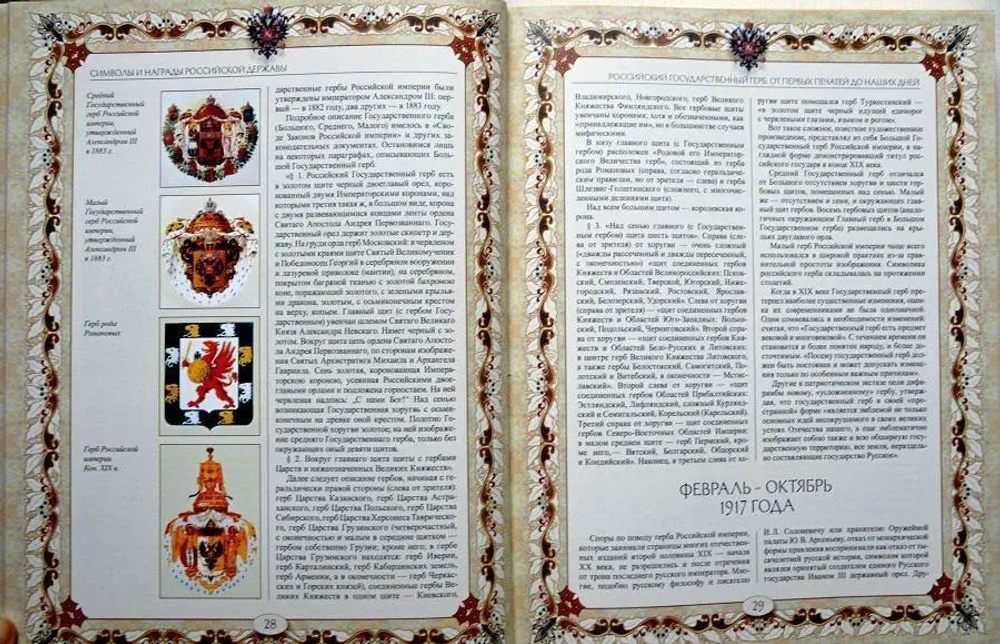 СИМВОЛЫ И НАГРАДЫ РОССИЙСКОЙ ДЕРЖАВЫ
Средний
Государственный
герб Российской
империи,
утвержденный
Александром III
в 1883 г.
Малый
Государственный
герб Российской
империи,
утвержденный
Александром III
в 1883 г.
Герб рода
Романовых
Герб Российской
империи.
Кон. XIX в.
дарственные гербы Российской империи были
утверждены императором Александром III: пер-
вый — в 1882 году, два других — в 1883 году.
Подробное описание Государственного герба
(Большого, Среднего, Малого) имелось в «Сво-
де Законов Российской империи» и других за-
конодательных документах. Остановимся лишь
на некоторых параграфах, описывающих Боль-
шой Государственный герб.
«§ 1. Российский Государственный герб есть
в золотом щите черный двоеглавый орел, коро-
нованный двумя Императорскими коронами, над
которыми третья такая ж, в большом виде, корона
с двумя развевающимися концами ленты ордена
Святаго Апостола Андрея Первозваннаго. Госу-
дарственный орел держит золотые скипетр и дер-
жаву. На груди орла герб Московский: в червленом
с золотыми краями щите Святый Великомученик
и Победоносец Георгий в серебряном вооружении
и лазуревой приволоке (мантии), на серебряном,
покрытом багряной тканью с золотой бахромою
коне, поражающий золотого, с зелеными крылья-
ми дракона, золотым, с осьмиконечным крестом
на верху, копьем. Главный щит (с гербом Госу-
дарственным) увенчан шлемом Святаго Великаго
Князя Александра Невскаго. Намет черный с зо-
лотом. Вокруг щита цепь ордена Святаго Апосто-
ла Андрея Первозваннаго, по сторонам изображе-
ния Святых Архистратига Михаила и Архангела
Гавриила. Сень золотая, коронованная Импера-
торскою короною, усеянная Российскими двое-
главыми орлами и подложена горностаем. На ней
червленая надпись: „С нами Бог!“ Над сенью
возникающая Государственная хоругвь, с осьми-
конечным на древке оной крестом. Полотно Го-
сударственной хоругви золотое, на ней изображе-
ние средняго Государственнаго герба, только без
окружающих оный девяти щитов.
§ 2. Вокруг главнаго щита щиты с гербами
Царств и нижеозначенных Великих Княжеств».
Далее следует описание гербов, начиная с ге-
ральдически правой стороны (слева от зрителя):
герб Царства Казанского, герб Царства Астра-
ханского, герб Царства Польского, герб Царства
Сибирского, герб Царства Херсонеса Тавриче-
ского, герб Царства Грузинского (четверочастный,
с оконечностью и малым в середине щитком —
гербом собственно Грузии; кроме него, в гербе
Царства Грузинского находятся: герб Иверии,
герб Карталинии, герб Кабардинских земель,
герб Армении, а в оконечности — герб Черкас-
ских и Горских князей), соединенные гербы Ве-
ликих Княжеств в одном щите — Киевского,
28
РОССИЙСКИЙ ГОСУДАРСТВЕННЫЙ ГЕРБ ОТ ПЕРВЫХ ПЕЧАТЕЙ ДО НАШИХ ДНЕЙ
Владимирского, Новгородского, герб Великого
Княжества Финляндского. Все гербовые щиты
увенчаны коронами, хотя и обозначенными, как
«принадлежащие им», но в большинстве случаев
мифическими.
В низу главного щита (с Государственным
гербом) расположен «Родовой его Императорс-
кого Величества герб», состоящий из герба
рода Романовых (справа, согласно геральдиче-
ским правилам, но от зрителя — слева) и герба
Шлезвиг-Голштинского (сложного, с многочис-
ленными делениями щита).
Над всем большим щитом — королевская ко-
рона.
§ 3. «Над сенью главного (с Государствен-
ным гербом) щита шесть щитов». Справа (сле-
ва от зрителя) от хоругви — очень сложный
(«дважды рассеченный и дважды пересеченный,
с оконечностью») «щит соединенных гербов
Княжеств и Областей Великороссийских: Псков-
ский, Смоленский, Тверской, Югорский, Ниже-
городский, Рязанский, Ростовский, Ярослав-
ский, Белозерский, Удорский». Слева от хоругви
(справа от зрителя) — «щит соединенных гербов
Княжеств и Областей Юго-Западных: Волын-
ский, Подольский, Черниговский». Второй спра-
ва от хоругви — «щит соединенных гербов Кня-
жеств и Областей Бело-Русских и Литовских:
в центре герб Великого Княжества Литовского,
а также гербы Белостокский, Самогитский, По-
лотский и Витебский, в оконечности — Мстис-
лавский». Второй слева от хоругви — «щит
соединенных гербов Областей Прибалтийских:
Эстляндский, Лифляндский, сложный Курлянд-
ский и Семигальский, Корельский (Карельский).
Третий справа от хоругви — щит соединенных
гербов Северо-Восточных Областей Империи:
в малом среднем щите — герб Пермский, кро-
ме него,— Вятский, Болгарский, Обдорский
и Кондийский». Наконец, в третьем слева от хо-
ругви щите помещался герб Туркестанский —
«в золотом щите черный идущий единорог
с червлеными глазами, языком и рогом».
Вот такое сложное, поистине художественное
произведение, представлял из себя Большой Го-
сударственный герб Российской империи, в на-
глядной форме демонстрировавший титул рос-
сийского государя в конце XIX века.
Средний Государственный герб отличался
от Большого отсутствием хоругви и шести гер-
бовых щитов, помещенных над сенью. Малый
же — отсутствием и сени, и окружающих глав-
ный щит гербов. Восемь гербовых щитов (анало-
гичных окружающим Главный герб в Большом
Государственном гербе) размещались на кры-
льях двуглавого орла.
Малый герб Российской империи чаще всего
использовался в широкой практике из-за срав-
нительной простоты изображения. Символика
российского герба складывалась на протяжении
столетий.
Когда в XIX веке Государственный герб пре-
терпел наиболее существенные изменения, оцен-
ка их современниками не была однозначной.
Одни сомневались в необходимости изменений,
считая, что «Государственный герб есть предмет
вековой и многовековой. С течением времени он
становится и более понятен народу, и более до-
статочным. «Посему государственный герб долж-
ен быть постоянен и может допускать измене-
ния только по особенным важным причинам».
Другие в патриотическом экстазе пели дифи-
рамбы новому, «усложненному» гербу, утверж-
дая, что государственный герб в своей «про-
странной» форме «является эмблемой не только
основных идей несокрушимого в своих великих
устоях Отечества нашего, а еще эмблематично
изображает собою также и всю обширную госу-
дарственную территорию, все земли, нераздель-
но составляющие государство Русское».
ФЕВРАЛЬ – ОКТЯБРЬ
1917 ГОДА
Споры по поводу герба Российской империи,
которые занимали страницы многих отечествен-
ных изданий второй половины XIX — начала
XX века, не разрешились и после отречения
от трона последнего русского императора. Мно-
гие, подобно русскому философу и писателю
И.Л. Солоневичу или хранителю Оружейной
палаты Ю.В. Арсеньеву, отказ от монархической
формы правления воспринимали как отказ от ты-
сячелетней русской истории, символом которой
являлся принятый создателем единого Русского
государства Иваном III державный орел. Дру-
29